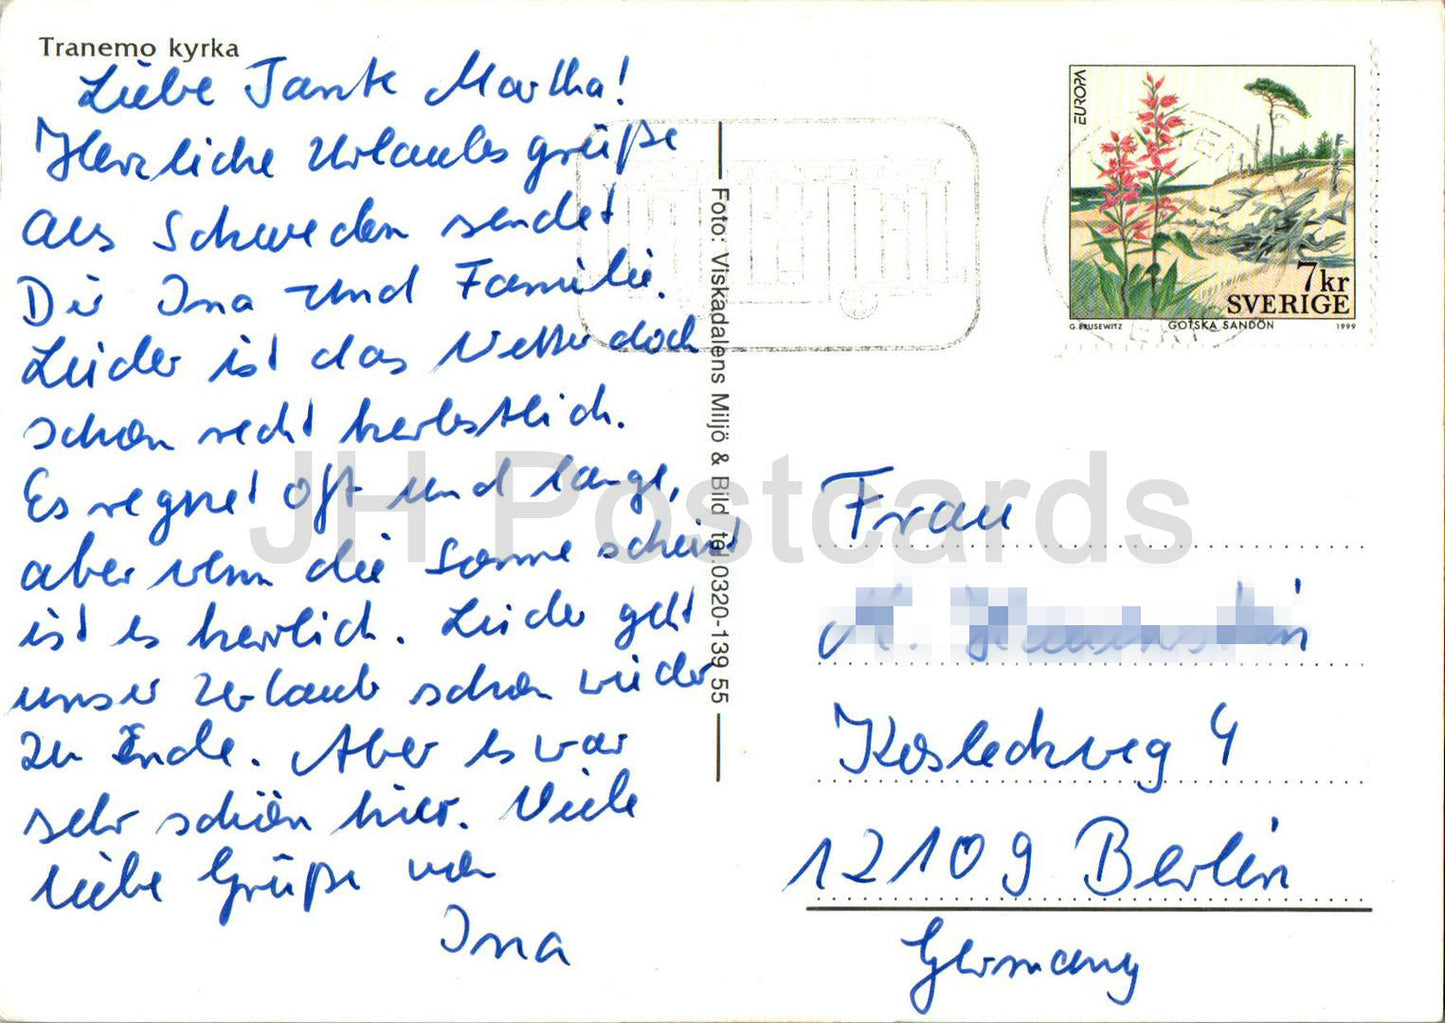 Tranemo kyrka
Liebe Tante Martha!
Herzliche Urlaubsgrüße
aus Schweden sendet
Dir Ina und Familie.
Leider ist das Wetter doch
schon recht herbstlich.
Es regnet oft und lange,
aber wenn die Sonne scheint
ist es herrlich. Leider geht
unser Urlaub schon wieder
zu Ende. Aber es war
sehr schön hier. Viele
liebe Grüße von
Ina
Foto: Viskadalens Miljö & Bild tel 0320-139 55
EUROPA
7kr
SVERIGE
G. BRUSEWITZ GOTSKA SANDÖN 1999
JH Postcards
Frau
M.
Kosleckweg 4
12109 Berlin
Germany